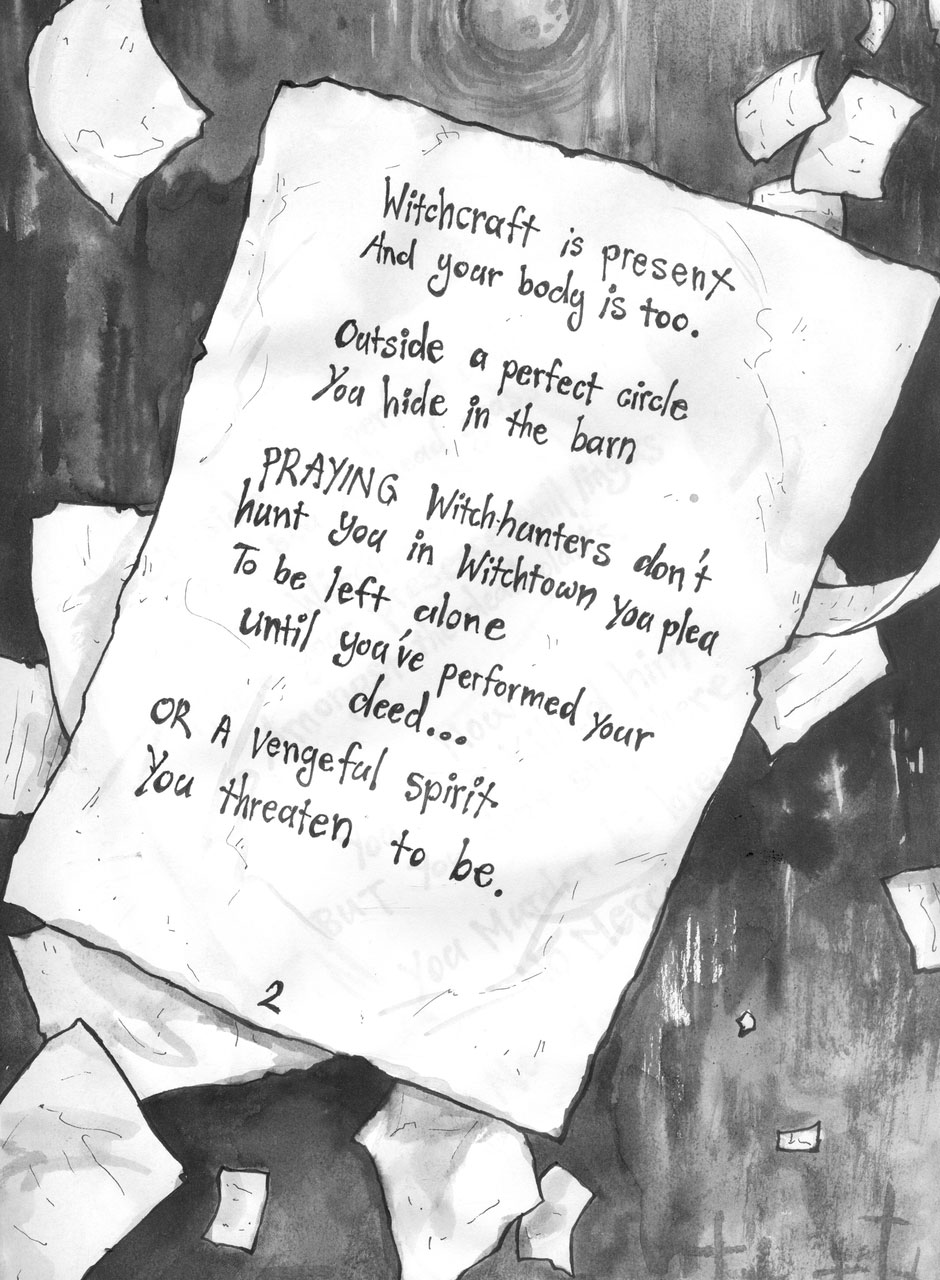 Witchcraft is present
And your body is too.
Outside a perfect circle
You hide in the barn
PRAYING Witch-hunters don't
hunt you in Witchtown you plea
To be left alone
until you've performed your
deed...
OR A vengeful spirit
You threaten to be.
2